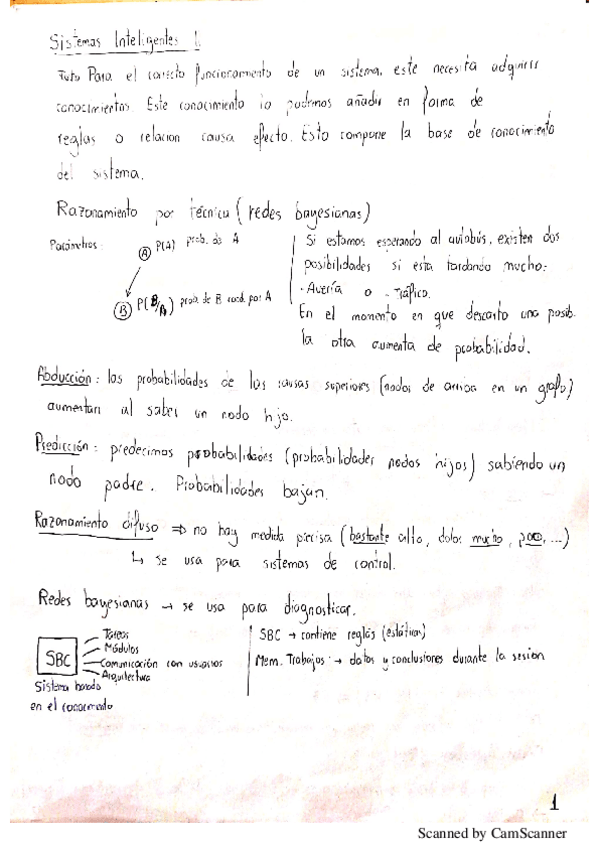 Sistemas Inteligentes 1.
Para el correcto funcionamiento de un sistema, este necesita adquirir
conocimientos. Este conocimiento lo podemos añadir en forma de
reglas o relacion causa efecto. Esto compone la base de conocimiento
del sistema.
Razonamiento por técnica (redes bayesianas)
Parámetros:
A P(A) prob. de A
B P(B/A) prob de B cond. por A
Si estamos esperando al autobús, existen dos
posibilidades si esta tardando mucho:
- Avería o - Tráfico.
En el momento en que descarto una posib.
la otra aumenta de probabilidad.
Abducción: las probabilidades de las causas superiores (nodos de arriba en un grafo)
aumentan al saber un nodo hijo.
Predicción: predecimos probabilidades (probabilidades nodos hijos) sabiendo un
nodo padre. Probabilidades bajan.
Razonamiento difuso ⇒ no hay medida precisa (bastante alto, dolor mucho, poco, ...)
↳ se usa para sistemas de control.
Redes bayesianas → se usa para diagnosticar.
SBC
Tareas
Módulos
Comunicación con usuarios
Arquitectura
Sistema basado
en el conocimiento
SBC → contiene reglas (estáticas)
Mem. Trabajos: → datos y conclusiones durante la sesion
1
Scanned by CamScanner